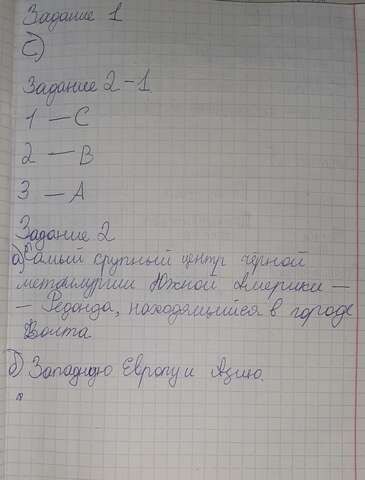 Задание 1
С)
Задание 2-1
1 — С
2 — В
3 — А
Задание 2
а) Самый крупный центр чёрной
металлургии Южной Америки —
— Редонда, находящийся в городе
Волта
б) Западную Европу и Азию.